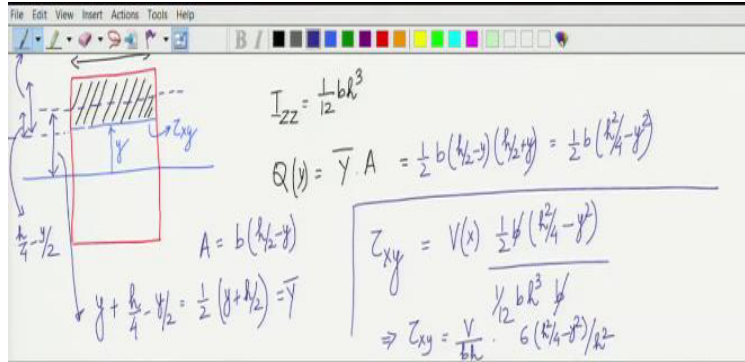 File Edit View Insert Actions Tools Help
B I
I_zz = 1/12 bh^3
τ_xy
y
Q(y) = Y̅ . A = 1/2 b(h/2-y)(h/2+y) = 1/2 b(h^2/4-y^2)
h/4-y/2
A = b(h/2-y)
y + h/4 - y/2 = 1/2 (y+h/2) = Y̅
τ_xy = V(x) 1/2 b (h^2/4-y^2) / 1/12 bh^3 b
⇒ τ_xy = V/bh . 6(h^2/4-y^2)/h^2